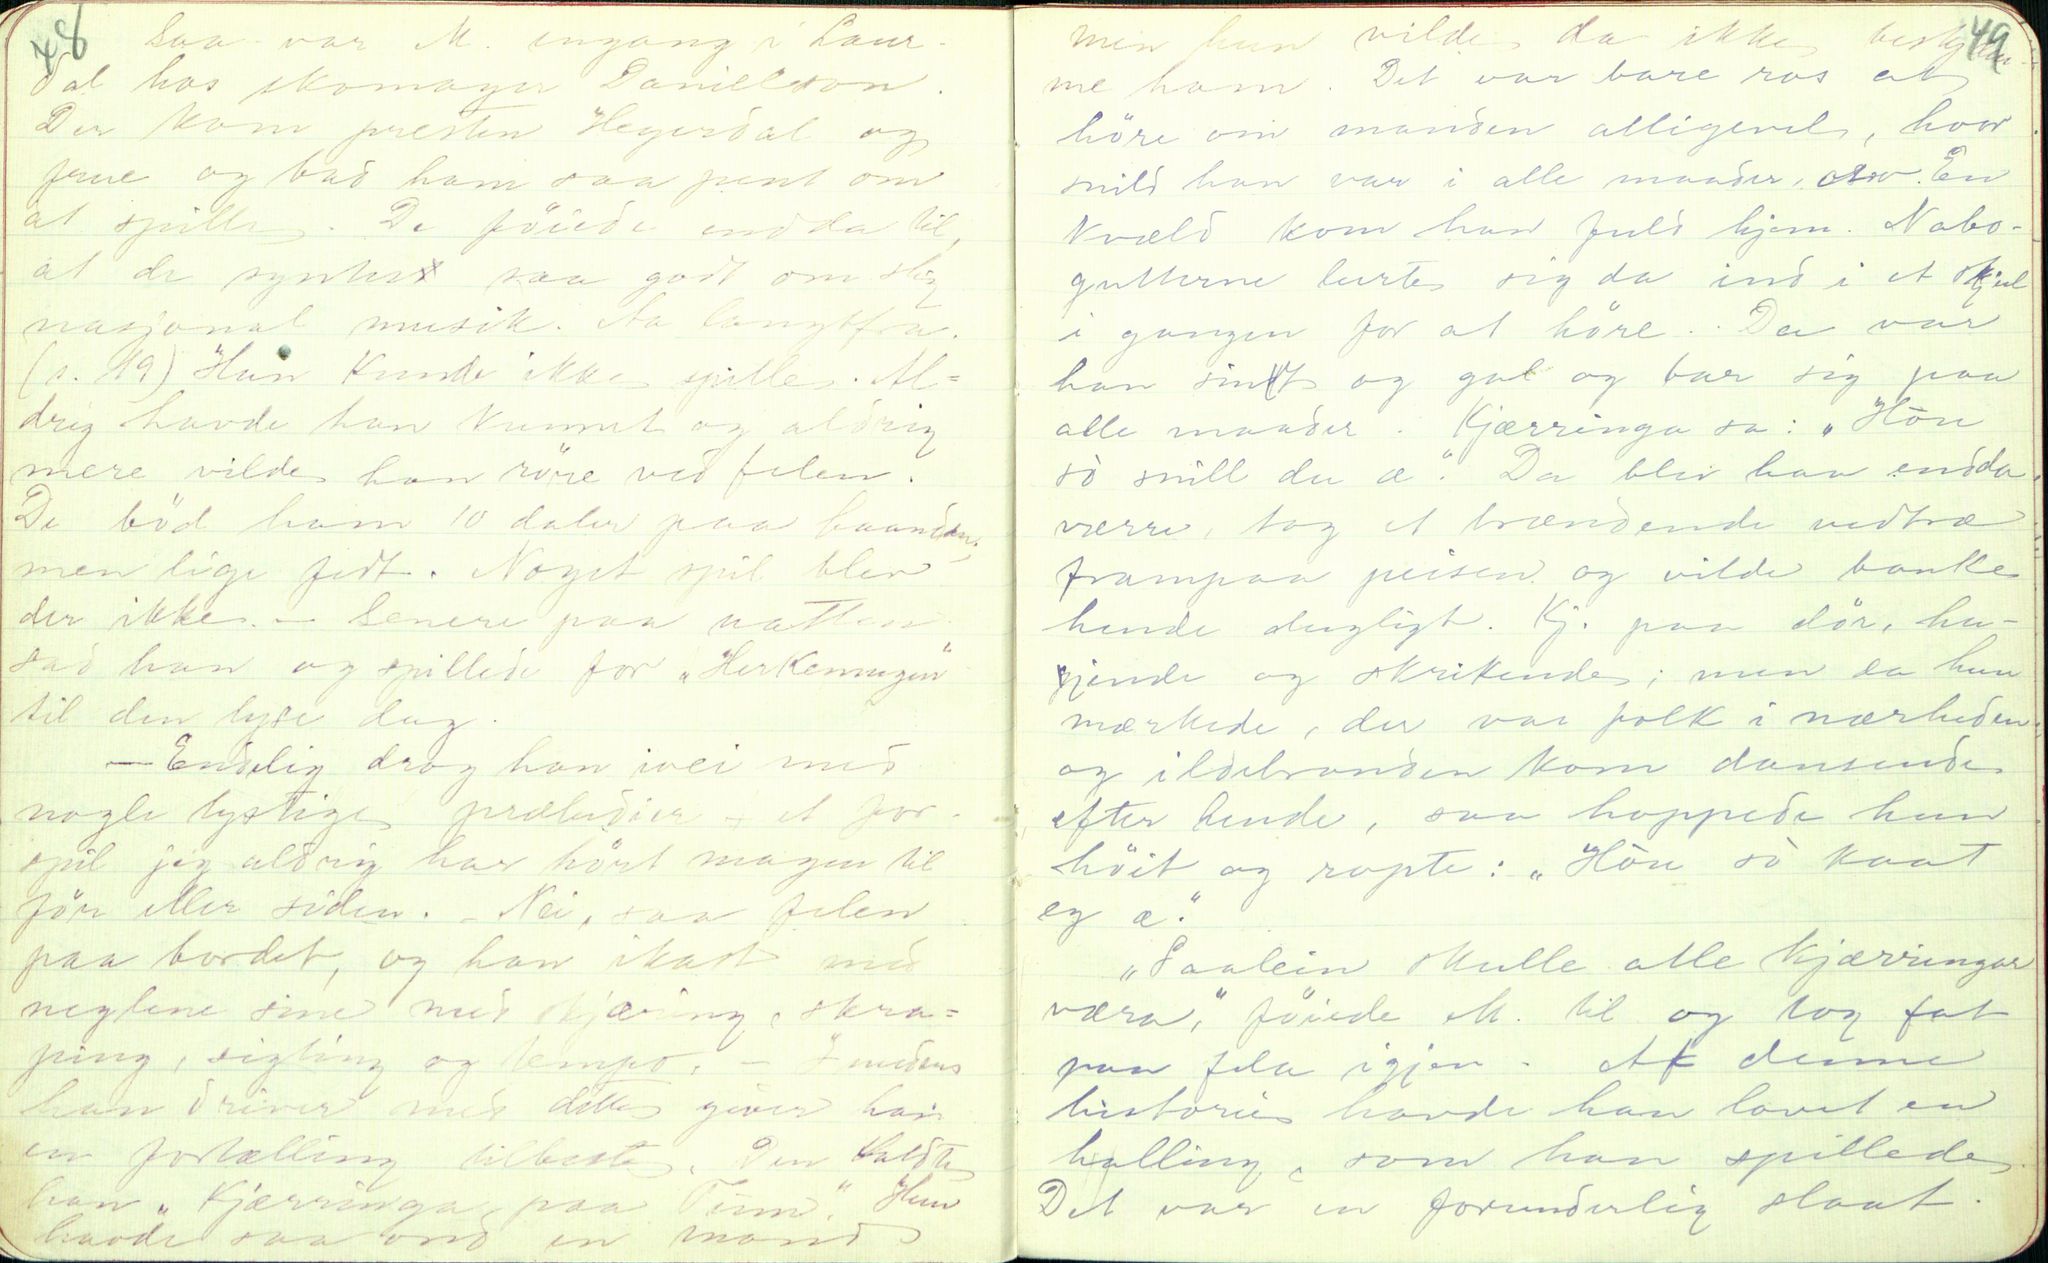 48
Saa var M. engang i Laur-
dal hos skomager Danielson.
Der kom presten Hegerdal og
frue og bad ham saa pent om
at spille. De föiede endda til,
at de syntes saa godt om slig
nasjonal musik. Aa langtfra.
(s. 19) Han kunde ikke spille. Al=
drig havde han kunnet og aldrig
mere vilde han röre ved felen.
De böd ham 10 daler paa haanden,
men lige fedt. Noget spil blev
der ikke. – Senere paa natten
sad han og spillede for „Herkemugen"
til den lyse dag.
— Endelig drog han ivei med
nogle lystige præludier – et for-
spil jeg aldrig har hört magen til
för eller siden. – Nei, saa felen
paa bordet, og han ikast med
neglene sine med skjæring, skra=
ping, sigting og tempo. – Imedens
han driver med dette giver han
en fortælling tilbeste. Den kaldte
han „Kjærringa paa Tinn." Hun
havde saa ond en mand
49
men hun vilde da ikke beskjæm-
me ham. Det var bare ros at
höre om manden alligevel, hvor
snild han var i alle maader, osv. En
kvæld kom han fuld hjem. Nabo-
gutterne lurte sig da ind i et skjul
i gangen for at höre. Da var
han sindt og gal og bar sig paa
alle maader. Kjærringa sa: „Höu
sò snill du æ". Da blev han endda
værre, tog et brændende vedtræ
frampaa peisen og vilde banke
hende dugligt. Kj. paa dör, hu-
jende og skrikende; men da hun
mærkede, der var folk i nærheden,
og ildebranden kom dansende
efter hende, saa hoppede hun
höit og ropte: „Höu sò kaat
eg æ."
„Saalein skulle alle kjærringar
væra," föiede M. til og tog fat
paa fela igjen. Af denne
historie havde han lavet en
halling, som han spillede.
Det var en forunderlig slaat.